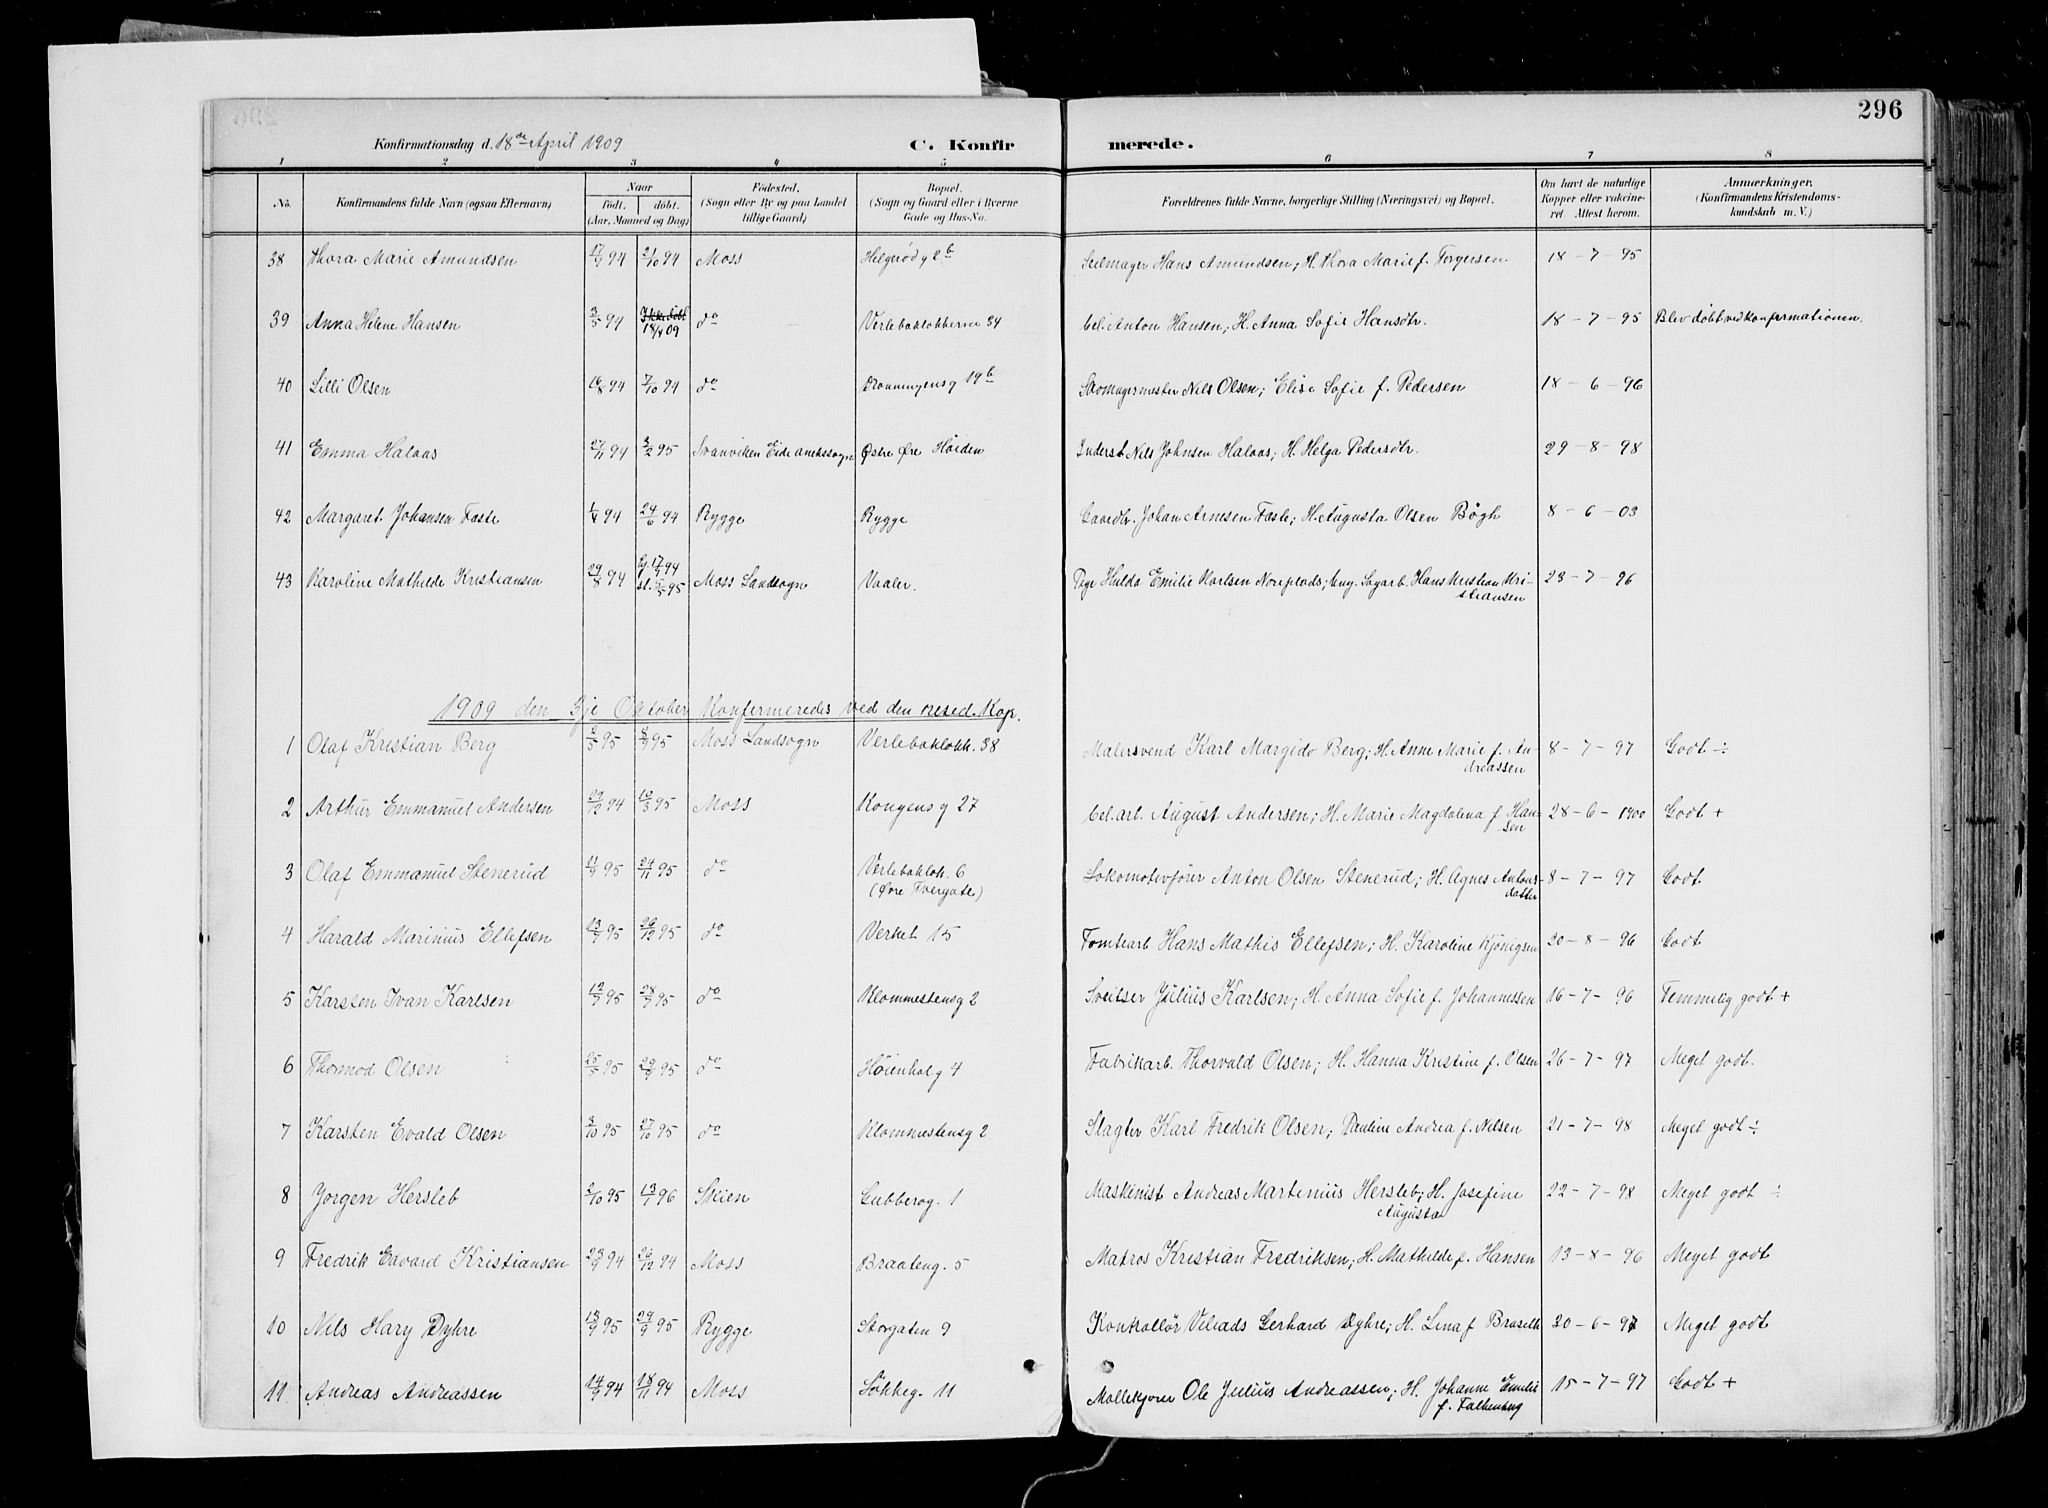 296
Konfirmationsdag d. 18de April 1909 C. Konfirmerede.
1 2 3 4 5 6 7 8
No. Konfirmandens fulde Navn (ogsaa Efternavn). Naar født. døbt. (Aar, Maaned og Dag) Fødested. (Sogn eller By og paa Landet tillige Gaard) Bopæl. (Sogn og Gaard eller i Byerne Gade og Hus-No. Forældrenes fulde Navne, borgerlige Stilling (Næringsvei) og Bopæl. Om havt de naturlige Kopper eller vakcineret Attest herom. Anmærkninger. (Konfirmandens Kristendomskundskab m. V.)
38 Thora Marie Amundsen 17/9 94 21/10 94 Moss Helgerødg 2b Seilmager Hans Amundsen; H. Thora Marie f. Torgersen 18-7-95
39 Anna Helene Hansen 3/5 94 Ikke døbt 18/4 09 do Verlebakløkkerne 34 Cel. Anton Hansen; H. Anna Sofie Hansdtr. 18-7-95 Blev døbt ved konfirmationen.
40 Lilli Olsen 16/8 94 7/10 94 do Dronningensg 19b Skomagermester Nils Olsen; Elise Sofie f. Pedersen 18-6-96
41 Emma Halaas 27/11 94 3/2 95 Svanviken Eide anekssogn Østre Øre Høiden Inderst Nils Johnsen Halaas; H. Helga Pedersdtr. 29-8-98
42 Margaret Johansen Faste 1/4 94 24/6 94 Rygge Rygge Gaardbr. Johan Arntsen Faste; H. Augusta Olsen Bøgh 8-6-03
43 Karoline Mathilde Kristiansen 29/8 94 Moss Landsogn Vaaler. Pige Hulda Emilie Karlsen Noreplads; Ung. Sagarb. Hans Kristian Kristiansen 23-7-96
1909 den 3je Oktober Konfirmeredes ved den resed. Kap.
1 Olaf Kristian Berg 2/5 95 8/9 95 Moss Landsogn Verlebakløkk. 38 Malersvend Karl Margido Berg; H. Anne Marie f. Andreassen 8-7-97 Godt ÷
2 Arthur Emmanuel Andersen 29/12 94 10/3 95 Moss Kongensg 27 Cel. arb. August Andersen; H. Marie Magdalena f. Hansen 28-6-1900 Godt +
3 Olaf Emmanuel Stenerud 11/9 95 24/11 95 do Verlebakløk. 6 (Øvre Tvergate) Lokomotivfører Anton Olsen Stenerud; H. Agnes Antonsdatter 8-7-97 Godt
4 Harald Marinius Ellefsen 13/9 95 26/12 95 do Verket 15 Tomtearb Hans Mathis Ellefsen; H. Karoline Kjønigsen 20-8-96 Godt
5 Karsten Ivan Karlsen 12/7 95 28/7 95 do Klommestensg 2 Sveitser Julius Karlsen; H. Anna Sofie f. Johannessen 16-7-96 Temmelig godt +
6 Thormod Olsen 25/5 95 29/9 95 do Høienholg 4 Fabrikarb. Thorvald Olsen; H. Hanna Kristine f. Olsen 26-7-97 Meget godt.
7 Karsten Evald Olsen 3/10 95 27/10 95 do Klommestensg 2 Slagter Karl Fredrik Olsen; Pauline Andrea f. Nilsen 21-7-98 Meget godt ÷
8 Jørgen Hersleb 2/10 95 13/1 96 Skien Gubberog. 1 Maskinist Andreas Martinius Hersleb; H. Josefine Augusta 22-7-98 Meget godt ÷
9 Fredrik Edvard Kristiansen 23/9 94 26/12 94 Moss Braateng. 5 Matros Kristian Fredriksen; H. Mathilde f. Hansen 13-8-96 Meget godt
10 Nils Hary Dyhre 13/9 95 29/9 95 Rygge Storgaten 9 Kontrollør Viliads Gerhard Dyhre; H. Lina f 30-6-97 Meget godt
11 Andreas Andreassen 14/9 94 18/11 94 Moss Løkkeg. 11 Møllekjører Ole Julius Andreassen; H. Johanne Emilie f. Falkenberg 15-7-97 Godt +